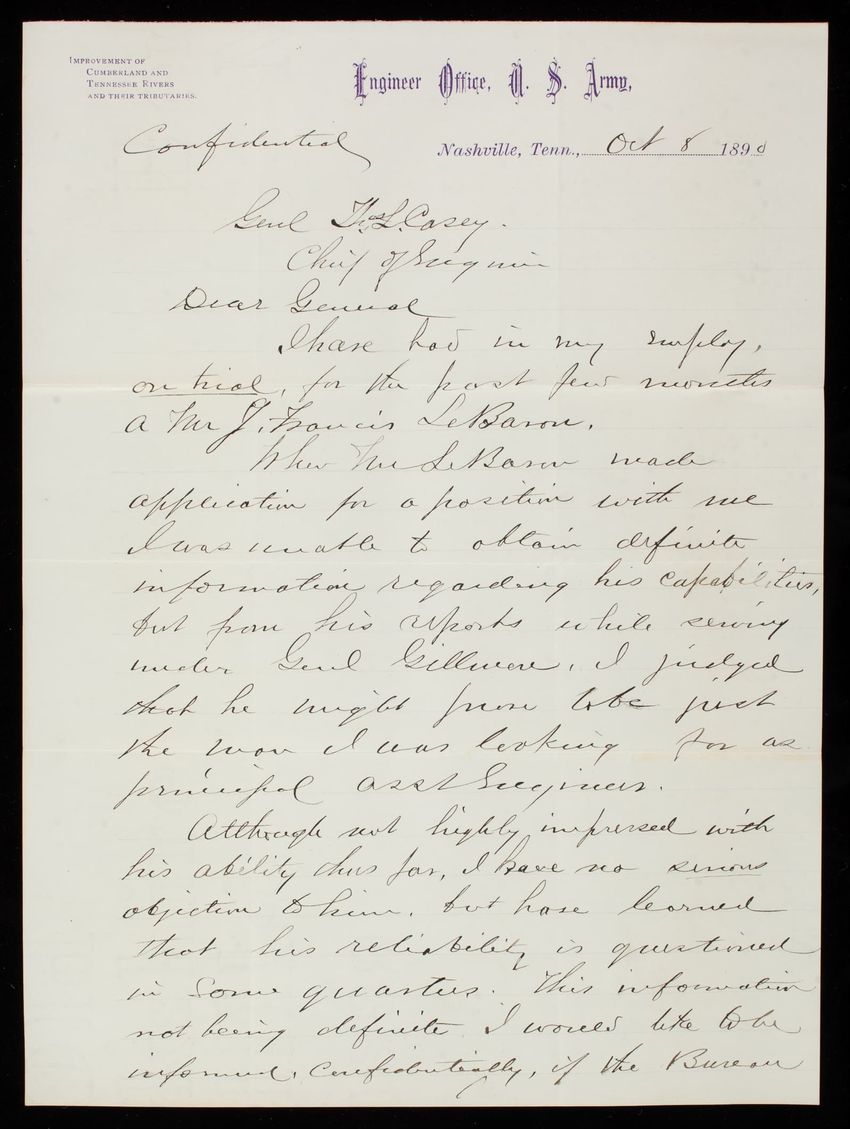 IMPROVEMENT OF
CUMBERLAND AND
TENNESSEE RIVERS
AND THEIR TRIBUTARIES.
Engineer Office, U. S. Army,
Confidential
Nashville, Tenn., Oct 8 1890
Genl Thos L. Casey.
Chief of Engineers
Dear General
I have had in my employ,
on trial, for the past few months
a Mr J. Francis LeBaron.
When Mr LeBaron made
application for a position with me
I was unable to obtain definite
information regarding his capabilities,
but from his reports while serving
under Genl Gillmore, I judged
that he might prove to be just
the man I was looking for as
principal asst Engineer.
Although not highly impressed with
his ability thus far, I have no serious
objection to him, but have learned
that his reliability is questioned
in some quarters. This information
not being definite I would like to be
informed, confidentially, if the Bureau